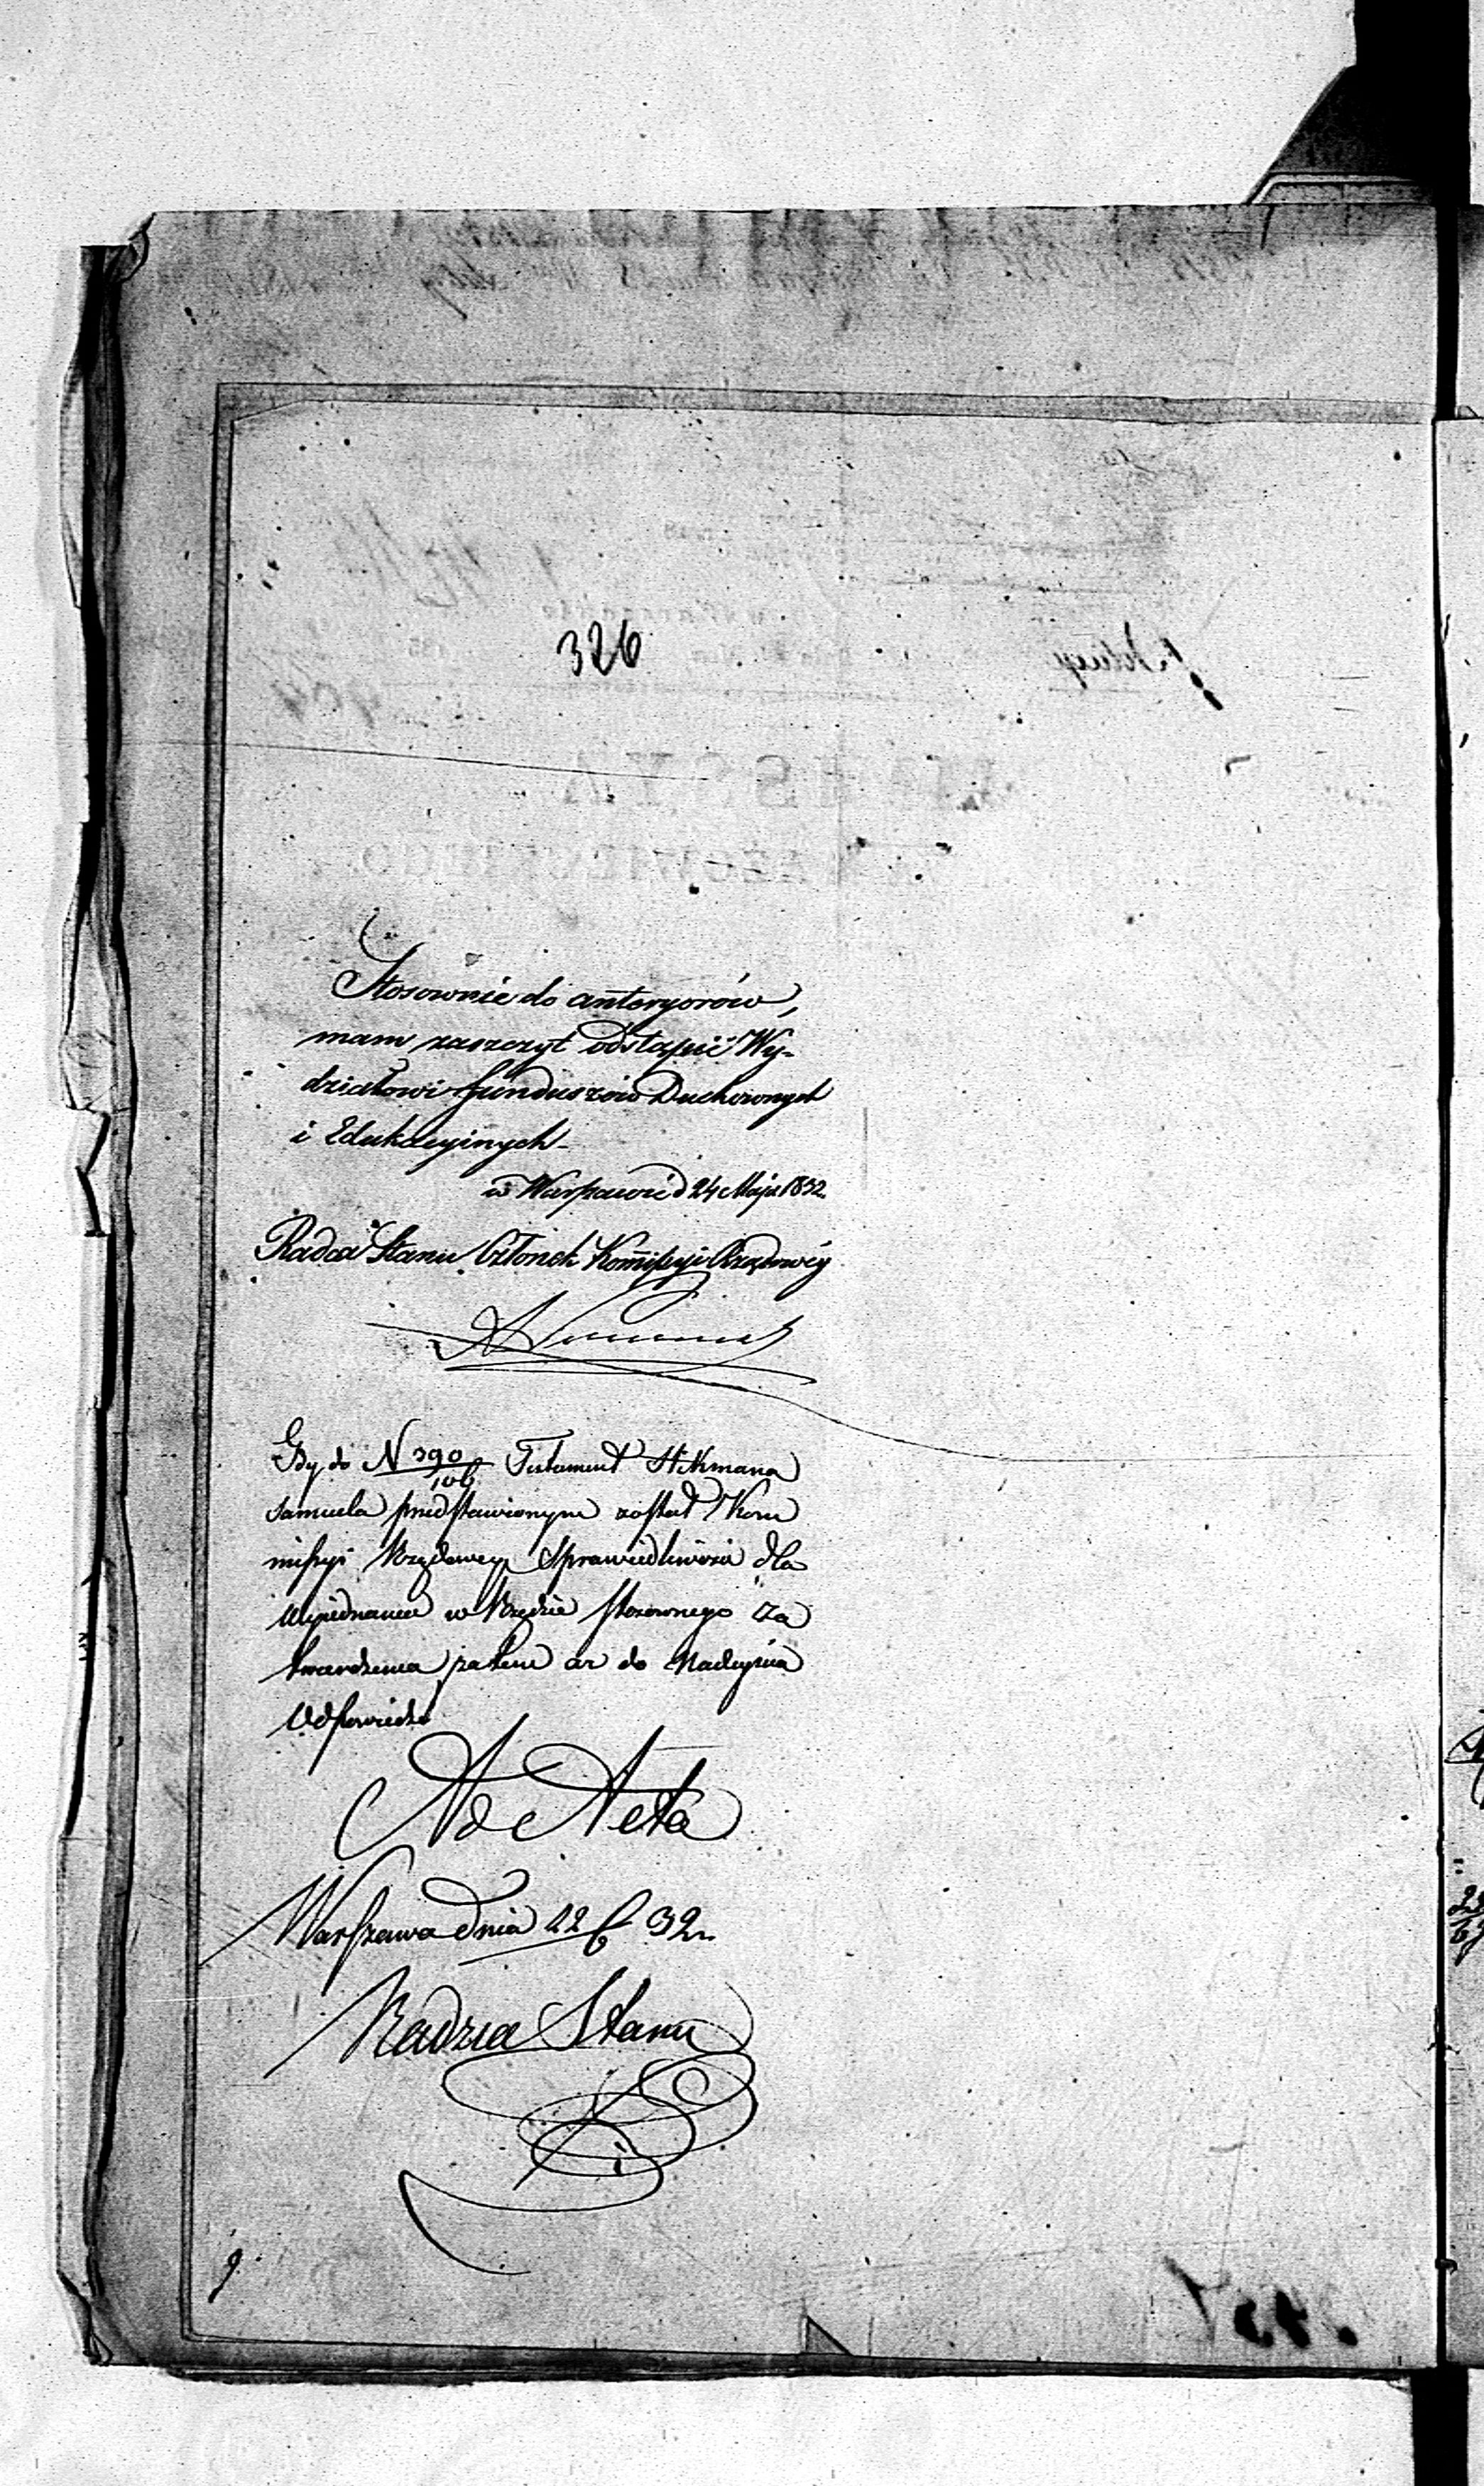 326
Stosownie do anteryorów,
mam zaszczyt odstąpić Wy-
działowi funduszów Duchownych
i Edukacyinych-
w Warszawie d 24 Maja 1832.
Radca Stanu Członek Kom̄issyi Rządowéy
Gdy do N 390/106 Testament Stikmana
Samuela przedstawionym został Kom
missyi Rządowey Sprawiedliwości dla
wyjednania w Rządzie stosownego za
twierdzenia, zatem aż do nadeyścia
Odpowiedzi
Ad Acta
Warszawa dnia 22/6 32 r.
Radzca Stanu
9.